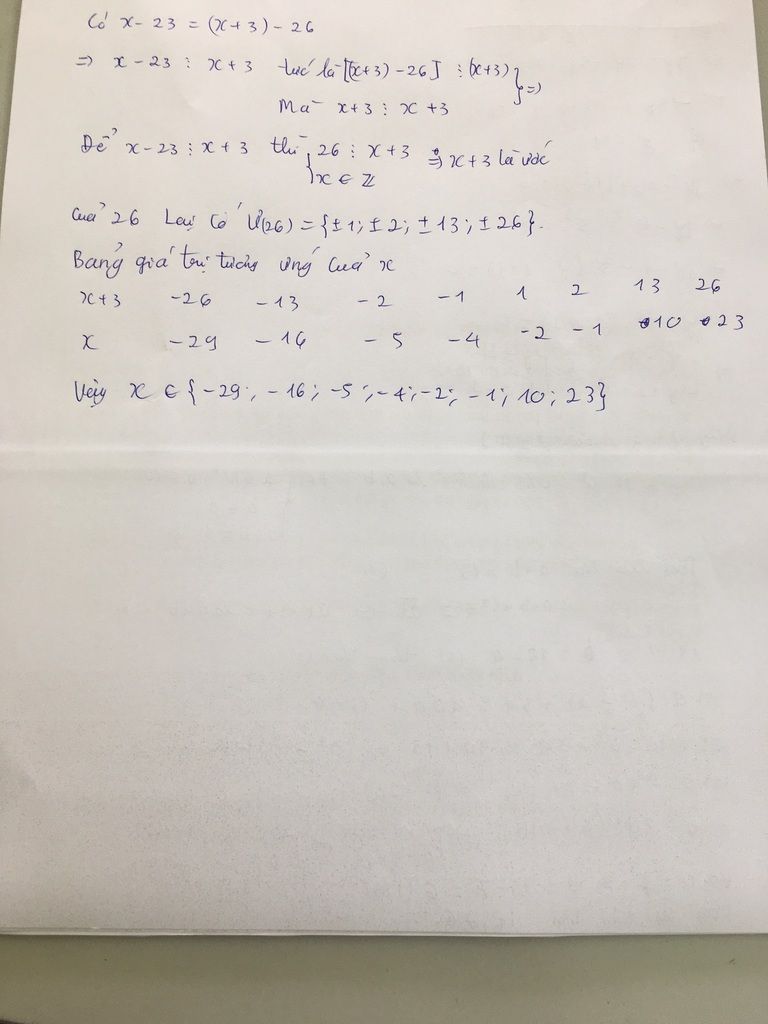 Có x - 23 = (x + 3) - 26
=> x - 23 ⋮ x + 3 tức là [(x+3) - 26] ⋮ (x+3) } =>
Mà x + 3 ⋮ x + 3
Để x - 23 ⋮ x + 3 thì { 26 ⋮ x + 3 => x + 3 là ước
x ∈ ℤ
của 26 Lại có Ư(26) = {±1; ±2; ±13; ±26}.
Bảng giá trị tương ứng của x
x+3 -26 -13 -2 -1 1 2 13 26
x -29 -16 -5 -4 -2 -1 10 23
Vậy x ∈ {-29; -16; -5; -4; -2; -1; 10; 23}